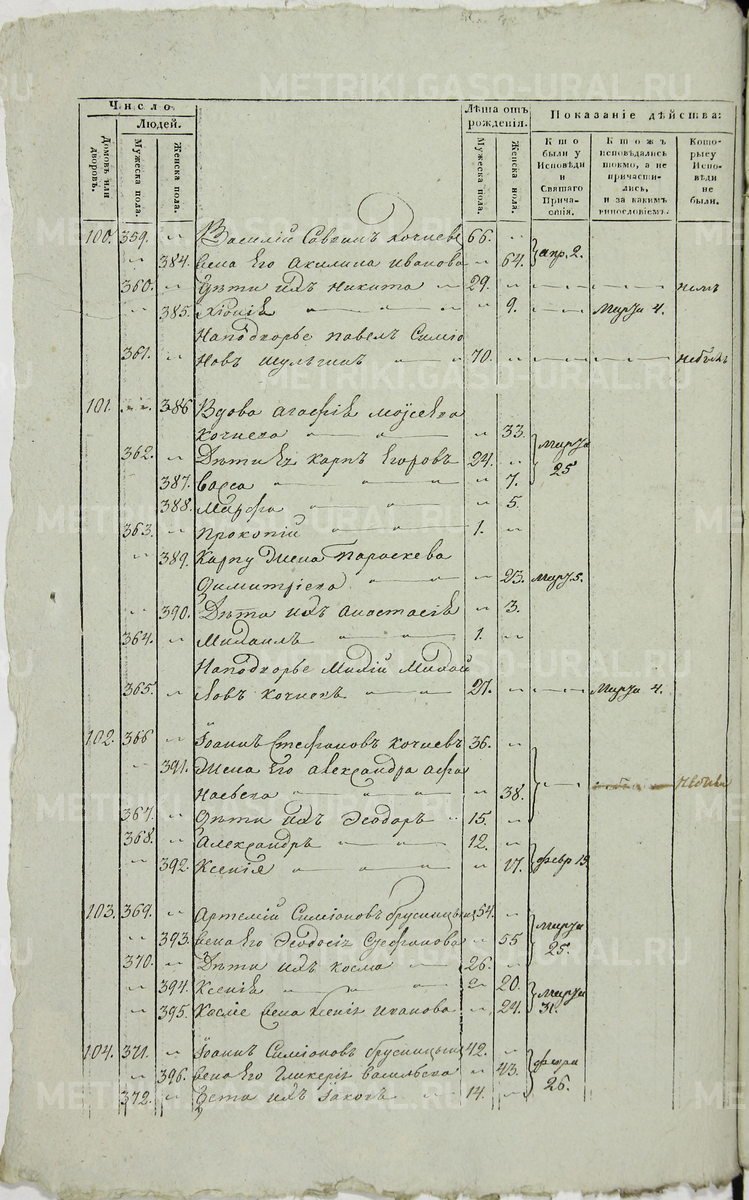 Число
Людей.
Домовъ или дворовъ.
Мужеска пола.
Женска пола.
Лѣта отъ рожденія.
Мужеска пола.
Женска пола.
Показаніе дѣйства:
Кто были у Исповѣди и Святаго Прича-стія.
Ктожъ исповѣдались токмо, а не причасти-лись, и за какимъ винословіемъ.
Кото-рыеу Испо-вѣди не были.
100. 359. Василій Саввинъ Кочневъ 66.
384. Жена Его Акилина Иванова 64. Апр. 2.
360. Дѣти ихъ Никита 29.
385. Хіонія 9. Марта 4.
На подворье Павелъ Симіо
361. новъ Шулгинъ 70. не былъ
101. 386. Вдова Агафія Мойсеева
Кочнева 33.
362. Дѣти Ея Карпъ Егоровъ 24. Марта 25
387. Васса 7.
388. Марфа 5.
363. Прокопій 1.
389. Карпу Жена Параскева
Димитріева 23. Мар. 5.
390. Дѣти ихъ Анастасія 3.
364. Михаилъ 1.
На подворье Михей Михай
365. ловъ Кочневъ 27. Марта 4.
102. 366 Іоаннъ Стефановъ Кочневъ 36.
391. Жена Его Александра Афа
насьева 38. не были
367. Дѣти ихъ Феодоръ 15.
368. Александръ 12.
392. Ксенія 17. февр 19.
103. 369. Артемій Симіоновъ Брусницынъ 54.
393. Жена Его Феодосія Стефанова 55 Марта 25.
370. Дѣти ихъ Косма 26.
394. Ксенія 20.
395. Космѣ Жена Ксенія Иванова 24. Марта 31.
104. 371. Іоаннъ Симіоновъ Брусницынъ 42.
396. Жена Его Гликерія Васильева 43. февра 26.
372. Дѣти ихъ Іаковъ 14.
METRIKI.GASO-URAL.RU